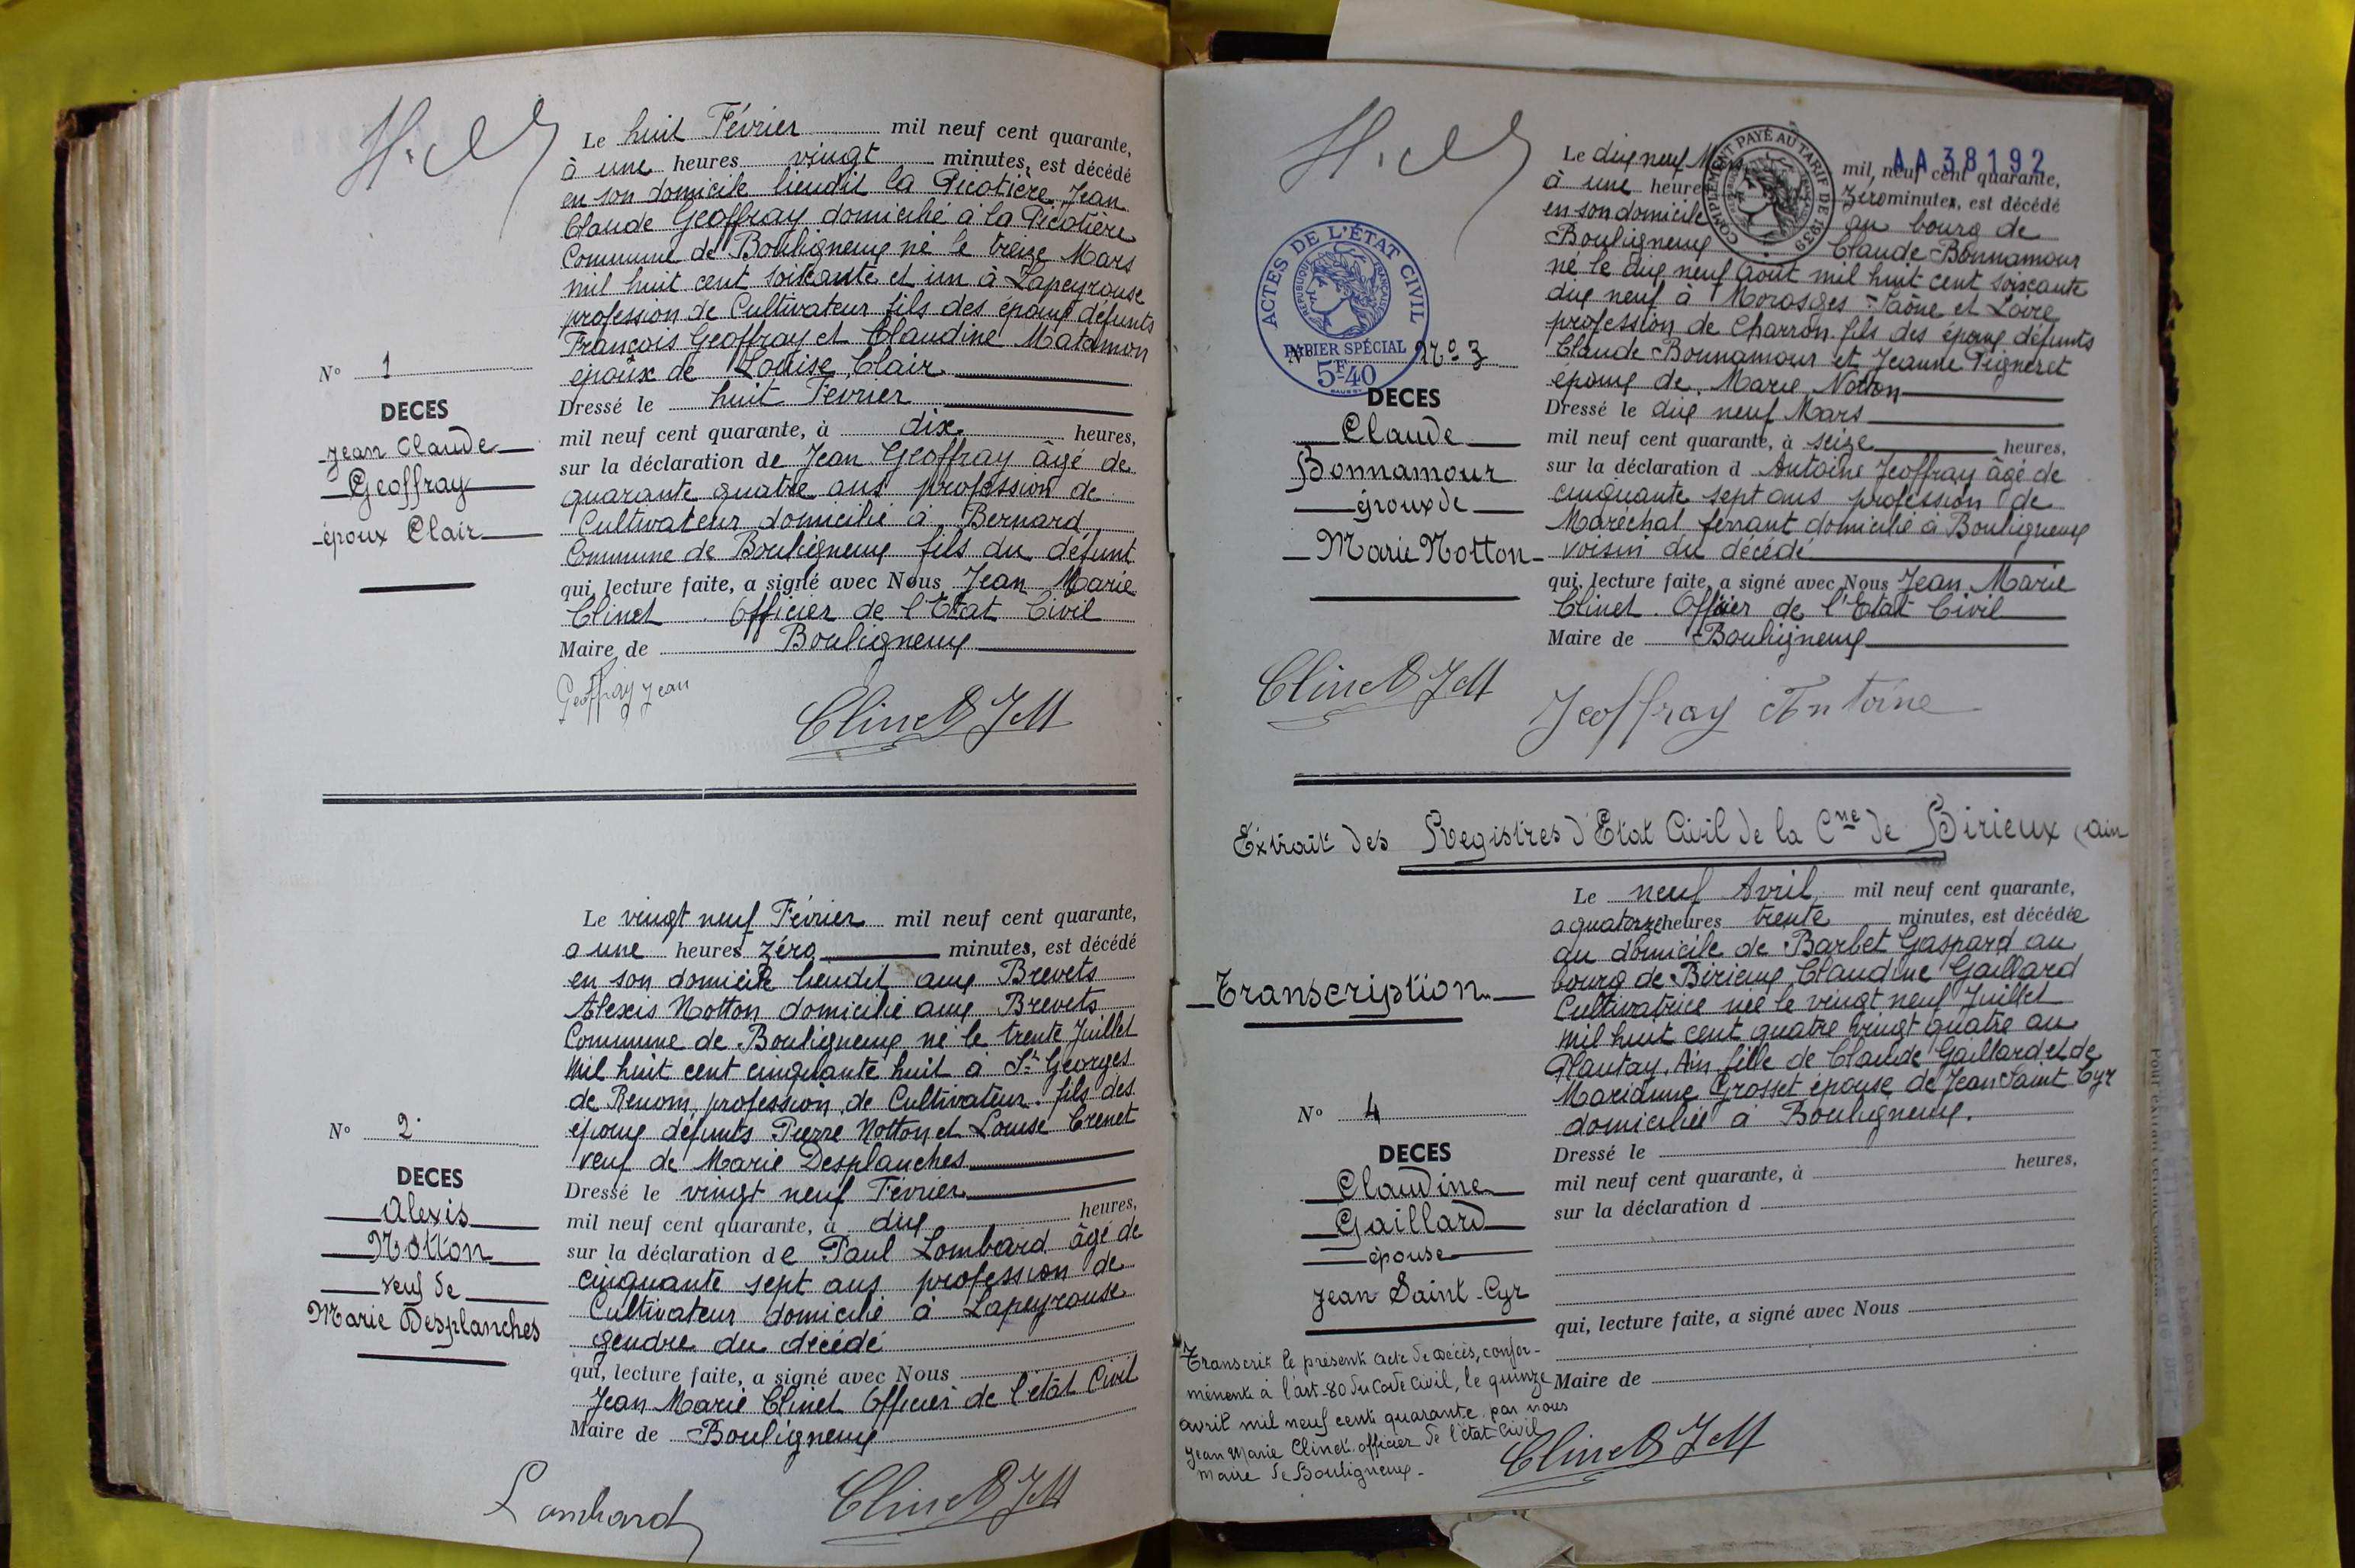 Le huit Février mil neuf cent quarante,
à une heures vingt minutes, est décédé
en son domicile lieudit la Picotière Jean
Claude Geoffray domicilié à la Picotière
Commune de Bouligneux né le treize Mars
mil huit cent soixante et un à Lapeyrouse
profession de Cultivateur fils des époux défunts
François Geoffray et Claudine Matamon
époux de Louise Clair
Nº 1
DECES
Jean Claude
Geoffray
époux Clair
Dressé le huit Février
mil neuf cent quarante, à dix heures,
sur la déclaration de Jean Geoffray âgé de
quarante quatre ans profession de
Cultivateur domicilié à Bernard
Commune de Bouligneux fils du défunt
qui, lecture faite, a signé avec Nous Jean Marie
Clinet Officier de l'Etat Civil
Maire de Bouligneux
Geoffray Jean
Clinet JM
Le vingt neuf Février mil neuf cent quarante,
à une heures zéro minutes, est décédé
en son domicile lieudit aux Brevets
Alexis Notton domicilié aux Brevets
Commune de Bouligneux né le trente Juillet
mil huit cent cinquante huit à St Georges
de Renom, profession de Cultivateur fils des
époux défunts Pierre Notton et Louise Crenet
veuf de Marie Desplanches
Nº 2
DECES
Alexis
Notton
veuf de
Marie Desplanches
Dressé le vingt neuf Février
mil neuf cent quarante, à dix heures,
sur la déclaration de Paul Lombard âgé de
cinquante sept ans profession de
Cultivateur domicilié à Lapeyrouse
gendre du décédé
qui, lecture faite, a signé avec Nous
Jean Marie Clinet Officier de l'état Civil
Maire de Bouligneux
Lombard
Clinet JM
AA38192
COMPLÉMENT PAYÉ AU TARIF DE 1939
Le dix neuf Mars mil neuf cent quarante,
à une heure Zéro minutes, est décédé
en son domicile au bourg de
Bouligneux Claude Bonnamour
né le dix neuf Août mil huit cent soixante
dix neuf à Morosges Saône et Loire
profession de Charron fils des époux défunts
Claude Bonnamour et Jeanne Pigneret
époux de Marie Notton
ACTES DE L'ÉTAT CIVIL
RÉPUBLIQUE FRANÇAISE
PAPIER SPÉCIAL
5F40
Nº 3
DECES
Claude
Bonnamour
époux de
Marie Notton
Dressé le dix neuf Mars
mil neuf cent quarante, à seize heures,
sur la déclaration d Antoine Jeoffray âgé de
cinquante sept ans profession de
Maréchal ferrant domicilié à Bouligneux
voisin du décédé
qui, lecture faite, a signé avec Nous Jean Marie
Clinet Officier de l'Etat Civil
Maire de Bouligneux
Clinet JM
Jeoffray Antoine
Extrait des Registres d'Etat Civil de la Cne de Birieux (ain
Le neuf Avril mil neuf cent quarante,
a quatorze heures trente minutes, est décédée
au domicile de Barbet Gaspard au
bourg de Birieux Claudine Gaillard
Cultivatrice née le vingt neuf Juillet
mil huit cent quatre vingt quatre au
Plantay, Ain, fille de Claude Gaillard et de
Marianne Grosset épouse de Jean Saint Cyr
domiciliée à Bouligneux.
Transcription
Nº 4
DECES
Claudine
Gaillard
épouse
Jean Saint-Cyr
Dressé le
mil neuf cent quarante, à heures,
sur la déclaration d
qui, lecture faite, a signé avec Nous
Maire de
Transcrit le présent acte de décès, confor-
mément à l'art. 80 du Code Civil, le quinze
avril mil neuf cent quarante par nous
Jean Marie Clinet officier de l'état civil
Maire de Bouligneux.
Clinet JM